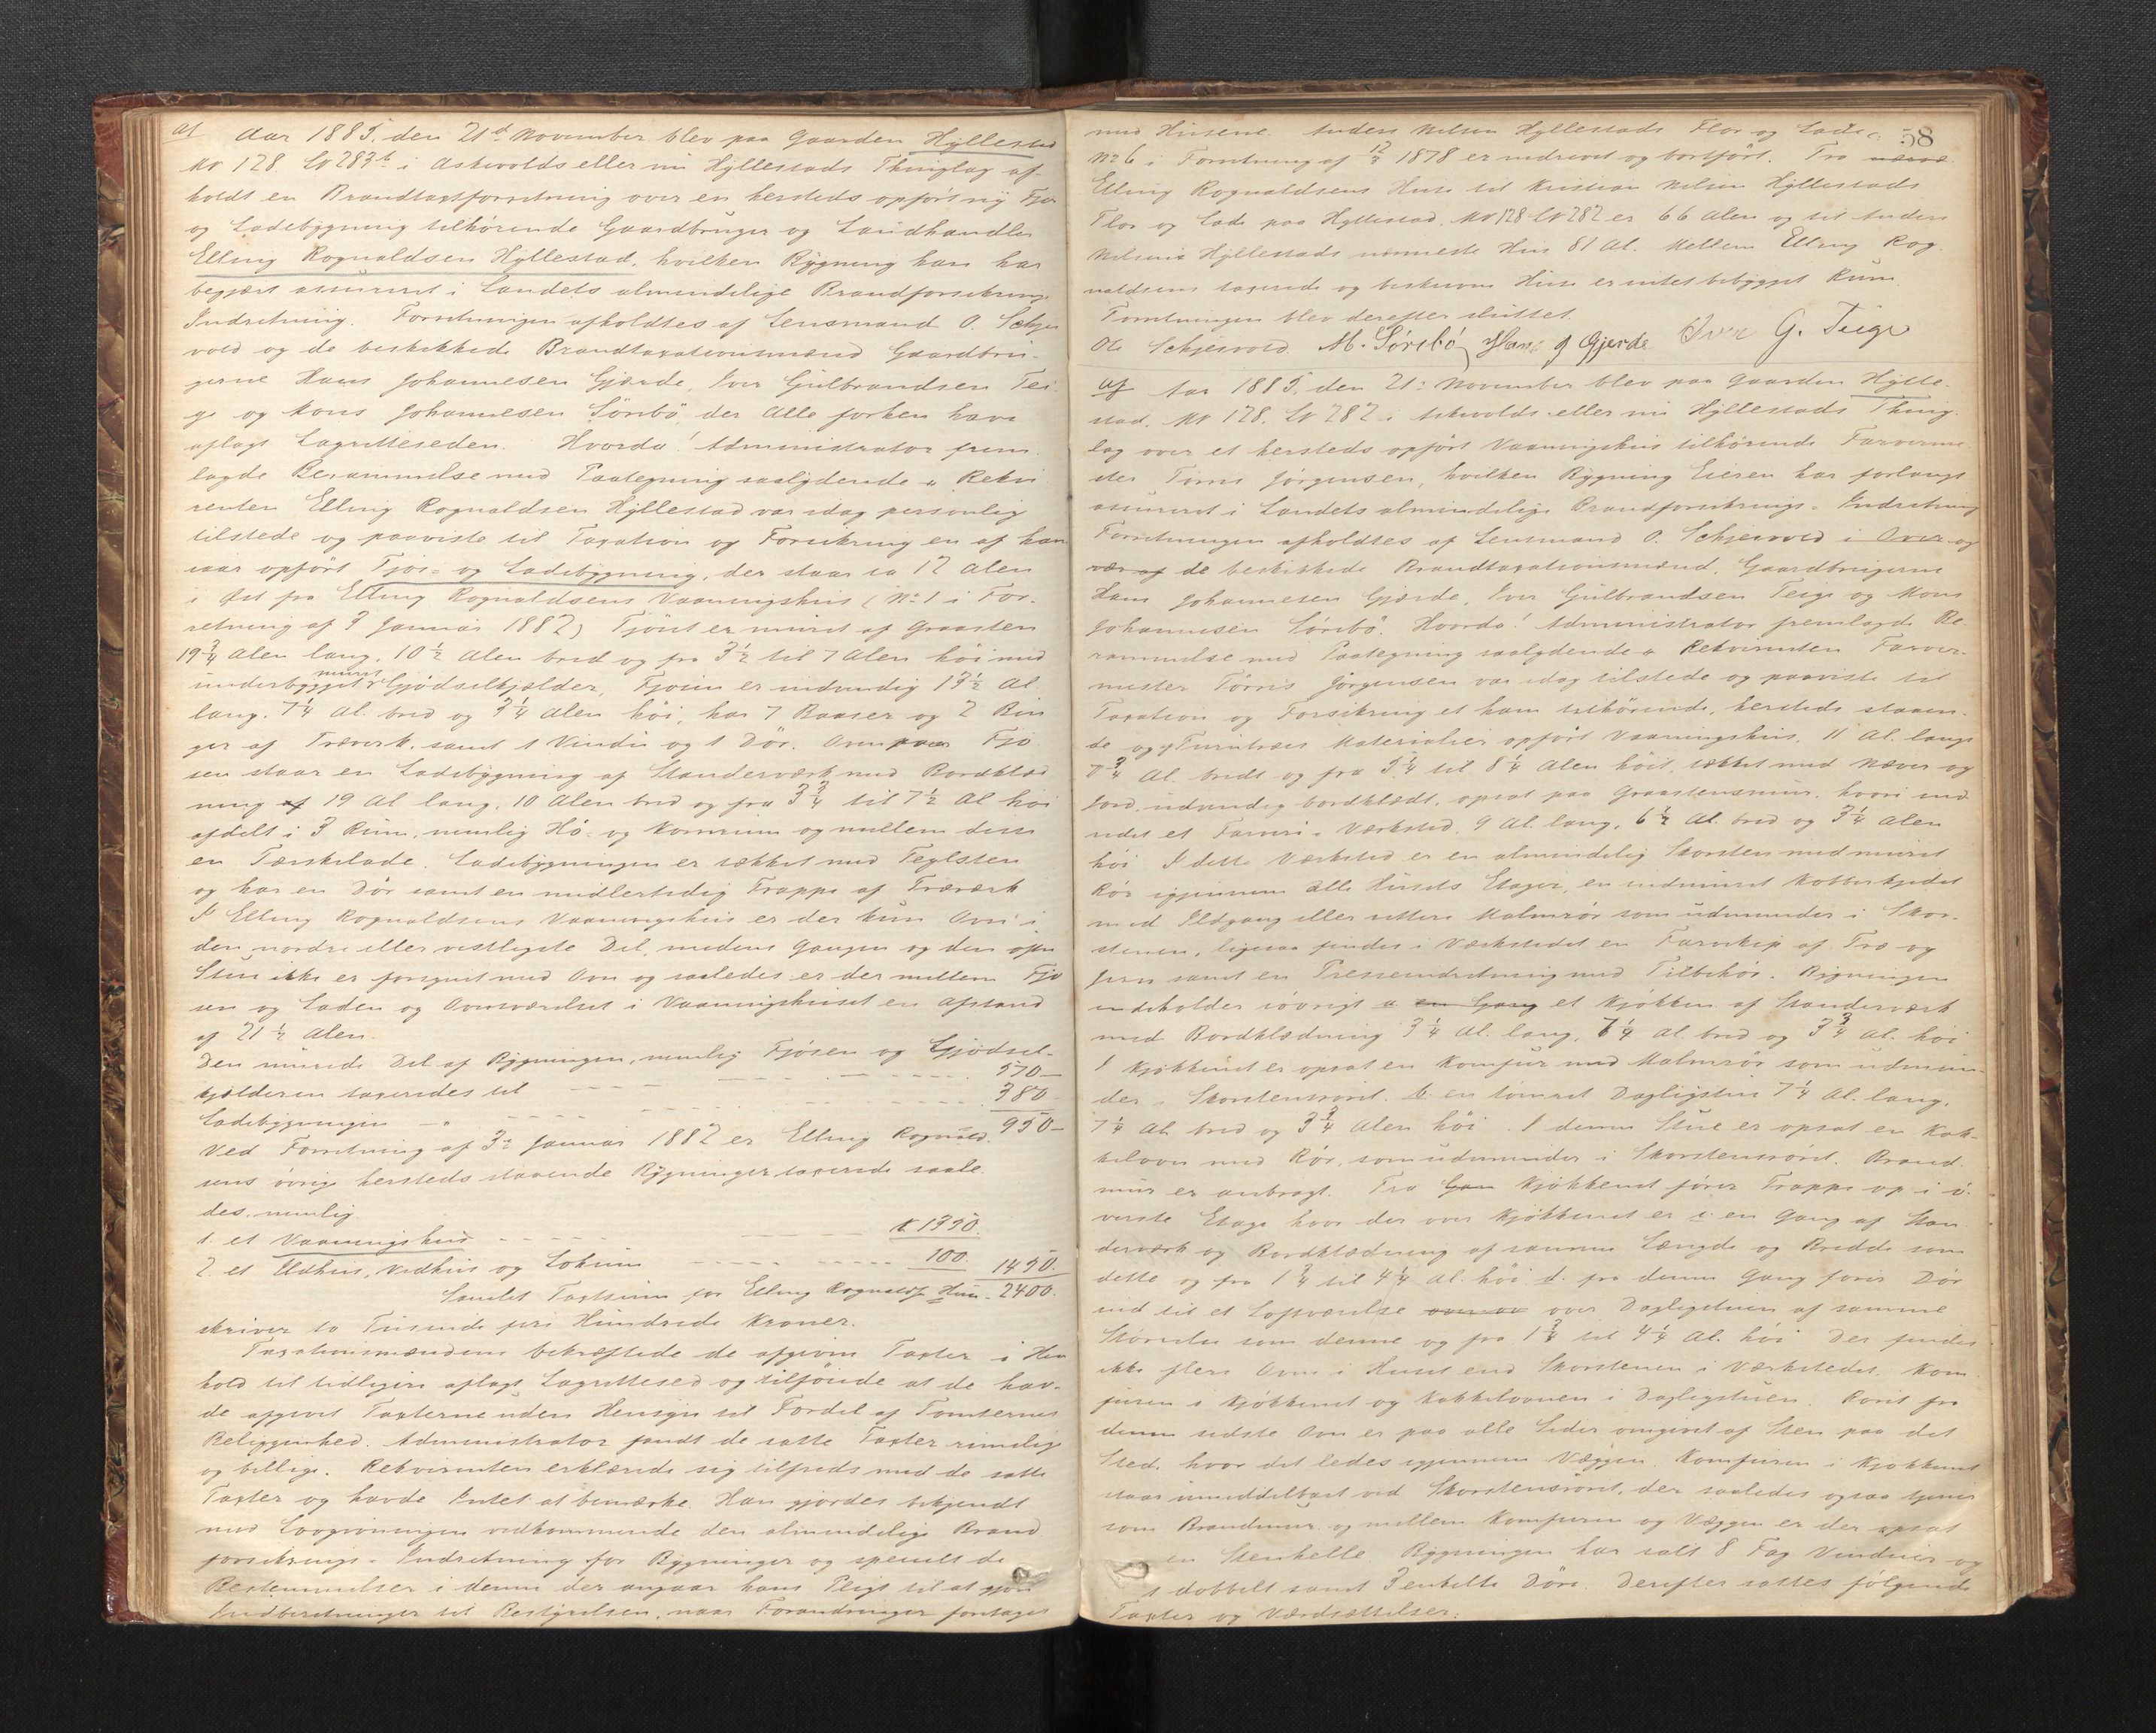 af Aar 1885, den 21de November blev paa Gaarden Hyllestad
No 128. Lv 283b i Askvolds eller nu Hyllestads Thinglag af-
holdt en Brandtaxtforretning over en hersteds opført ny Fjøs
og Ladebygning tilhørende Gaardbruger og Landhandler
Elling Rognaldsen Hyllestad, hvilken Bygning han har
begjært assureret i Landets almindelige Brandforsikrings
Indretning. Forretningen afholdtes af Lensmand O. Schjes
vold og de beskikkede Brandtaxationsmænd Gaardbru-
gerne Hans Johannesen Gjærde, Iver Gulbrandsen Tei
ge og Mons Johannesen Sørebø, der Alle forhen have
aflagt Lagretteseden. Hvorda! Administrator frem
lagde Berammelse med Paategning saalydende " Rekvi
renten Elling Rognaldsen Hyllestad var idag personlig
tilstede og paaviste til Taxation og Forsikring en af ham
iaar opført Fjøs- og Ladebygning, der staar ca 12 Alen
i Øst fra Elling Rognaldsens Vaaningshus (No 1 i For-
retning af 3 Januar 1882) Fjøset er muret af Graasten
19 3/4 Alen lang, 10 1/2 Alen bred og fra 3 1/2 til 7 Alen høi med
underbygget muret Gjødselkjælder, Fjøsen er indvendig 13 1/2 Al
lang. 7 1/4 Al. bred og 3 1/4 Alen høi, har 7 Baaser og 2 Bin
ger af Træverk, samt 1 Vindu og 1 Dør. Ovenpaa Fjø
sen staar en Ladebygning af Standerværk med Bordklæd
ning af 19 Al lang, 10 Alen bred og fra 3 3/4 til 7 1/2 Al høi
afdelt i 3 Rum, nemlig Hø- og Kornrum og mellem disse
en Tærskelade. Ladebygningen er tækket med Teglsten
og har en Dør samt en midlertidig Trappe af Træværk
I Elling Rognaldsens Vaaningshus er der kun Ovn i
den nordre eller vestligste Del, medens Gangen og den øste
Stue ikke er forsynet med Ovn og saaledes er der mellem Fjø
sen og Laden og Ovnsværelset i Vaaningshuset en Afstand
af 21 1/2 Alen.
Den murede Del af Bygningen, nemlig Fjøsen og Gjødsel-
kjælderen taxeredes til 570 –
Ladebygningen – " 380 –
950 –
Ved Forretning af 3de Januar 1882 er Elling Rognald-
sens øvrige hersteds staaende Bygninger taxerede saale
des, nemlig
1. et Vaaningshus K 1350.
2. et Ildhus, Vedhus og Lokum 100. 1450.
Samlet Taxtsum for Elling Rognalds. Huse - 2400.
skriver to Tusinde fire Hundrede Kroner.
Taxationsmændene bekræftede de afgivne Taxter i Hen
hold til tidligere aflagt Lagrettesed og tilføiede at de hav-
de afgivet Taxterne uden Hensyn til Fordel af Tomternes
Beliggenhed. Administrator fandt de satte Taxter rimelige
og billige. Rekvirenten erklærede sig tilfreds med de satte
Taxter og havde Intet at bemærke. Han gjordes bekjendt
med Lovgivningen vedkommende den almindelige Brand
forsikrings-Indretning for Bygninger og specielt de
Bestemmelser i denne der angaar hans Pligt til at gjøre
Indberetninger til Bestyrelsen, naar Forandringer foretages
58
med Husene. Anders Nilsen Hyllestads Flor og Lade
No 6 i Forretning af 12/3 1878 er nedrevet og bortført. Fra
Elling Rognaldsens Huse til Kristian Nilsen Hyllestads
Flor og Lade paa Hyllestad, No 128 Lv 282 er 66 Alen og til Anders
Nilsens Hyllestads nærmeste Hus 81 Al. Mellem Elling Rog-
naldsens taxerede og beskrevne Huse er intet bebygget Rum.
Forretningen blev derefter sluttet.
Ole Schjesvold M. Sørebø Hans J Gjerde Iver G. Teige
af Aar 1885, den 21de November blev paa Gaarden Hylle-
stad, No 128. Lv 282 i Askvolds eller nu Hyllestads Thing-
lag over et hersteds opført Vaaningshus tilhørende Farverme
ster Tørris Jørgensen, hvilken Bygning Eieren har forlangt
assureret i Landets almindelige Brandforsikrings-Indretning
Forretningen afholdtes af Lensmand O. Schjesvold i Over og
vær af de beskikkede Brandtaxationsmænd, Gaardbrugerne
Hans Johannesen Gjærde, Iver Gulbrandsen Teige og Mons
Johannesen Sørebø. Hvorda! Administrator fremlagde Be-
rammelse med Paategning saalydende " Rekvirenten Farver-
mester Tørris Jørgensen var idag tilstede og paaviste til
Taxation og Forsikring et ham tilhørende, hersteds staaen-
de og af Furutræs Materialier opført Vaaningshus, 11 Al. langt
7 3/4 Al. bredt og fra 3 1/4 til 8 1/4 Alen høit, tækket med Næver og
Jord, udvendig bordklædt, opsat paa Graastensmur, hvori ind
redet et Farveri-Værksted, 9 Al. lang, 6 1/2 Al. bred og 3 1/4 Alen
høi. I dette Værksted er en almindelig Skorsten med muret
Rør igjennem alle Husets Etager, en indmuret Kobberkjedel
med Ildgang eller rettere Malmrør som udmunder i Skor-
stenen, ligesaa findes i Værkstedet en Farvekip af Træ og
Jern samt en Presseindretning med Tilbehør. Bygningen
indeholder iøvrigt a en Gang et Kjøkken af Standerværk
med Bordklædning 3 1/4 Al. lang, 7 1/4 Al. bred og 3 3/4 Al. høi
I Kjøkkenet er opsat en Komfur med Malmrør som udmun-
der i Skorstensrøret. b. en tømret Dagligstue 7 1/4 Al. lang,
7 1/4 Al. bred og 3 3/4 Alen høi. I denne Stue er opsat en Kak-
kelovn med Rør, som udmunder i Skorstensrøret. Brand-
mur er anbragt. Fra Gan Kjøkkenet fører Trappe op i ø-
verste Etage hvor der over Kjøkkenet er c en Gang af Stan
derværk og Bordklædning af samme Længde og Bredde som
dette og fra 1 3/4 til 4 1/4 Al. høi d. fra denne Gang fører Dør
ind til et Loftsværelse over Dagligstuen af samme
Størrelse som denne og fra 1 3/4 til 4 1/4 Al. høi. Der findes
ikke flere Ovne i Huset end Skorstenen i Værkstedet, Kom
furen i Kjøkkenet og Kakkelovnen i Dagligstuen. Røret fra
denne sidste Ovn er paa alle Sider omgivet af Sten paa det
Sted, hvor det ledes igjennem Væggen. Komfuren i Kjøkkenet
staar umiddelbart ved Skorstensrøret, der saaledes ogsaa tjener
som Brandmur og mellem Komfuren og Væggen er der opsat
en Stenhelle. Bygningen har ialt 8 Fag Vinduer og
1 dobbelt samt 3 enkelte Døre. Derefter sattes følgende
Taxter og Værdsættelser: